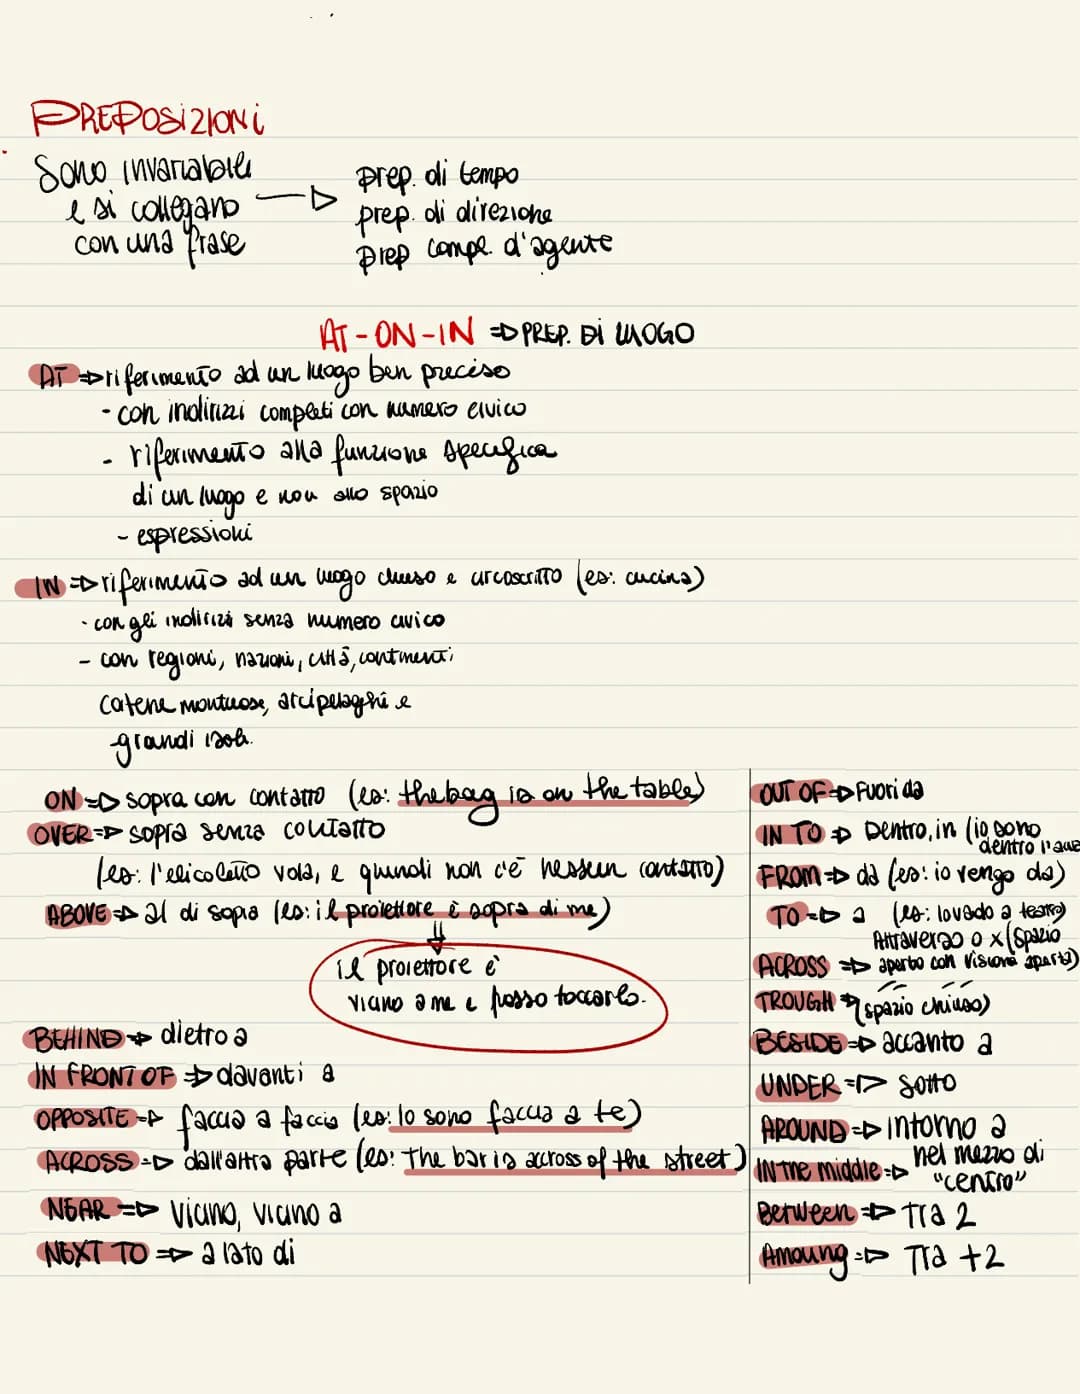 PREPOSIZIONI
Sono invariabili
e si collegano
con una frase
prep. di tempo
prep. di direzione
prep compl. d'agente
AT-ON-IN => PREP. DI LUOGO
AT => riferimento ad un luogo ben preciso
- con indirizzi completi con numero civico
- riferimento alla funzione specifica
di un luogo e non allo spazio
- espressioni
IN => riferimento ad un luogo chiuso e circoscritto (es: cucina)
- con gli indirizzi senza numero civico
- con regioni, nazioni, città, continenti,
catene montuose, arcipelaghi e
grandi isole.
ON => sopra con contatto (es: the bag is on the table)
OVER => sopra senza contatto
(es: l'elicottero vola, e quindi non c'è nessun contatto)
ABOVE => al di sopra (es: il proiettore è sopra di me)
il proiettore è
vicino a me e posso toccarlo.
BEHIND => dietro a
IN FRONT OF => davanti a
OPPOSITE => faccia a faccia (es: Io sono faccia a te)
ACROSS => dall'altra parte (es: The bar is across of the street)
NEAR => Vicino, vicino a
NEXT TO => a lato di
OUT OF => Fuori da
IN TO => Dentro, in (io sono
dentro l'
FROM => da (es: io vengo da)
TO => a (es: Io vado a teatro)
Attraverso o x (spazio
ACROSS => aperto con visione aperta)
TROUGH => " " (spazio chiuso)
BESIDE => accanto a
UNDER => sotto
AROUND => intorno a
IN THE middle => nel mezzo di
"centro"
Between => Tra 2
Amoung => Tra +2